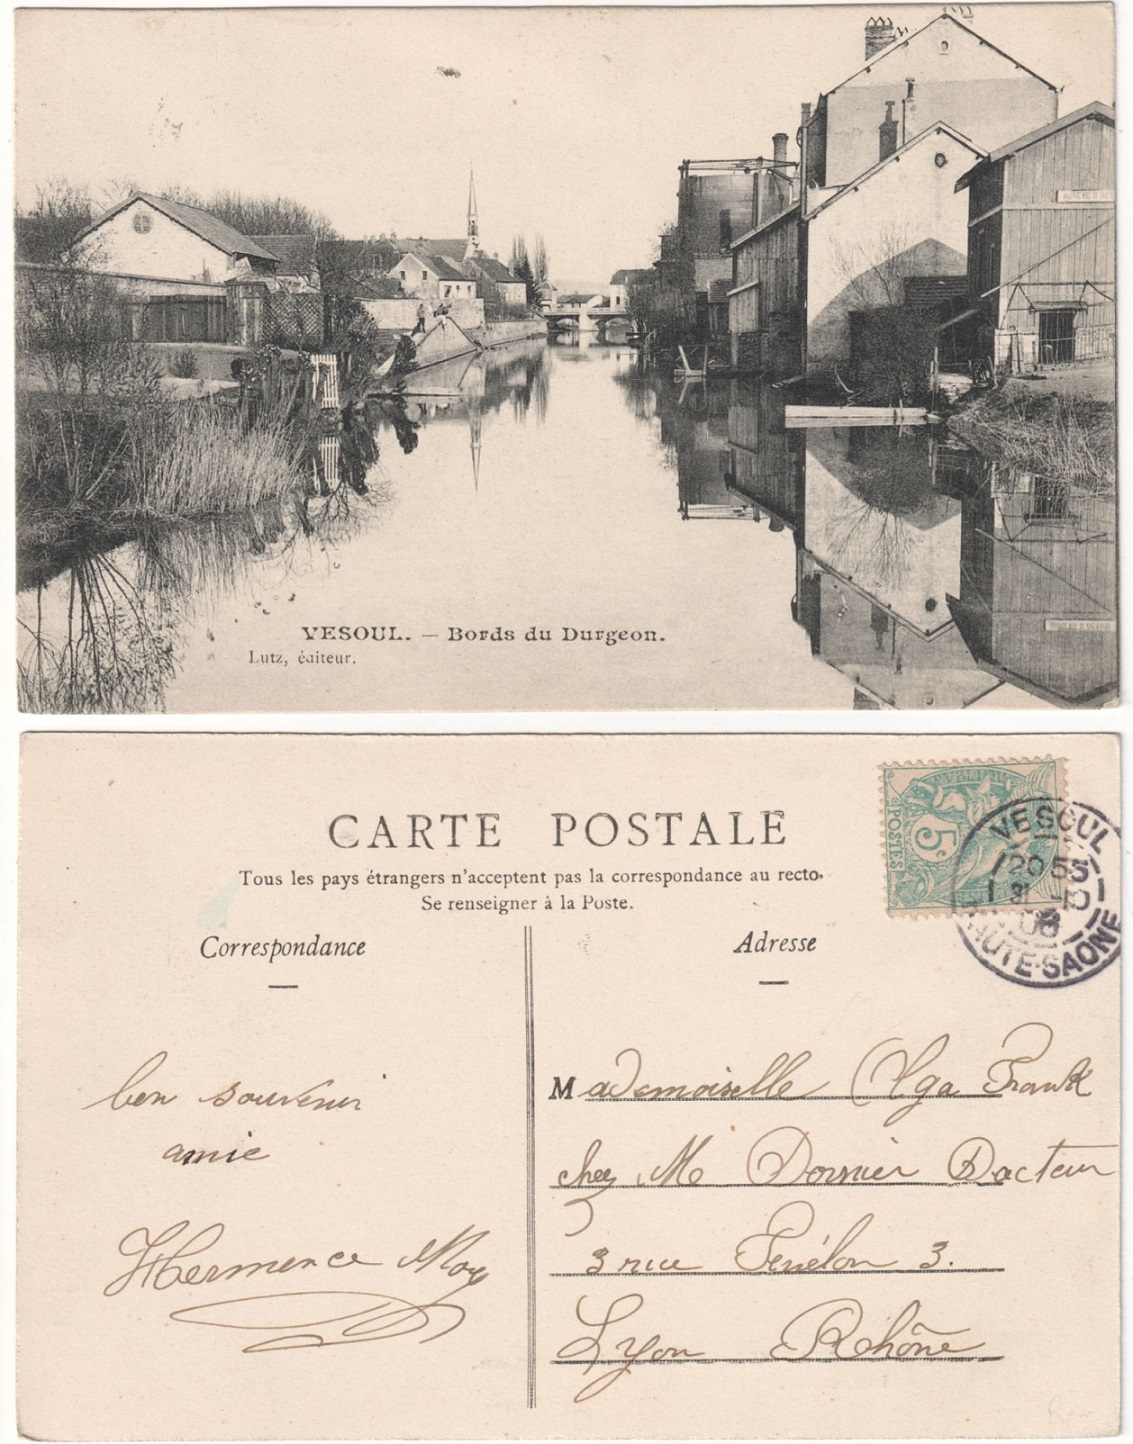 VESOUL. — Bords du Durgeon.
Lutz, éditeur.
CARTE POSTALE
Tous les pays étrangers n'acceptent pas la correspondance au recto.
Se renseigner à la Poste.
POSTES
5c
VESOUL
20 55
31 -10
06
HAUTE-SAONE
Correspondance
Adresse
bon souvenir
amie
Hermence
Mademoiselle Olga Frank
chez M Dornier Docteur
3 rue Fénélon 3.
Lyon Rhône